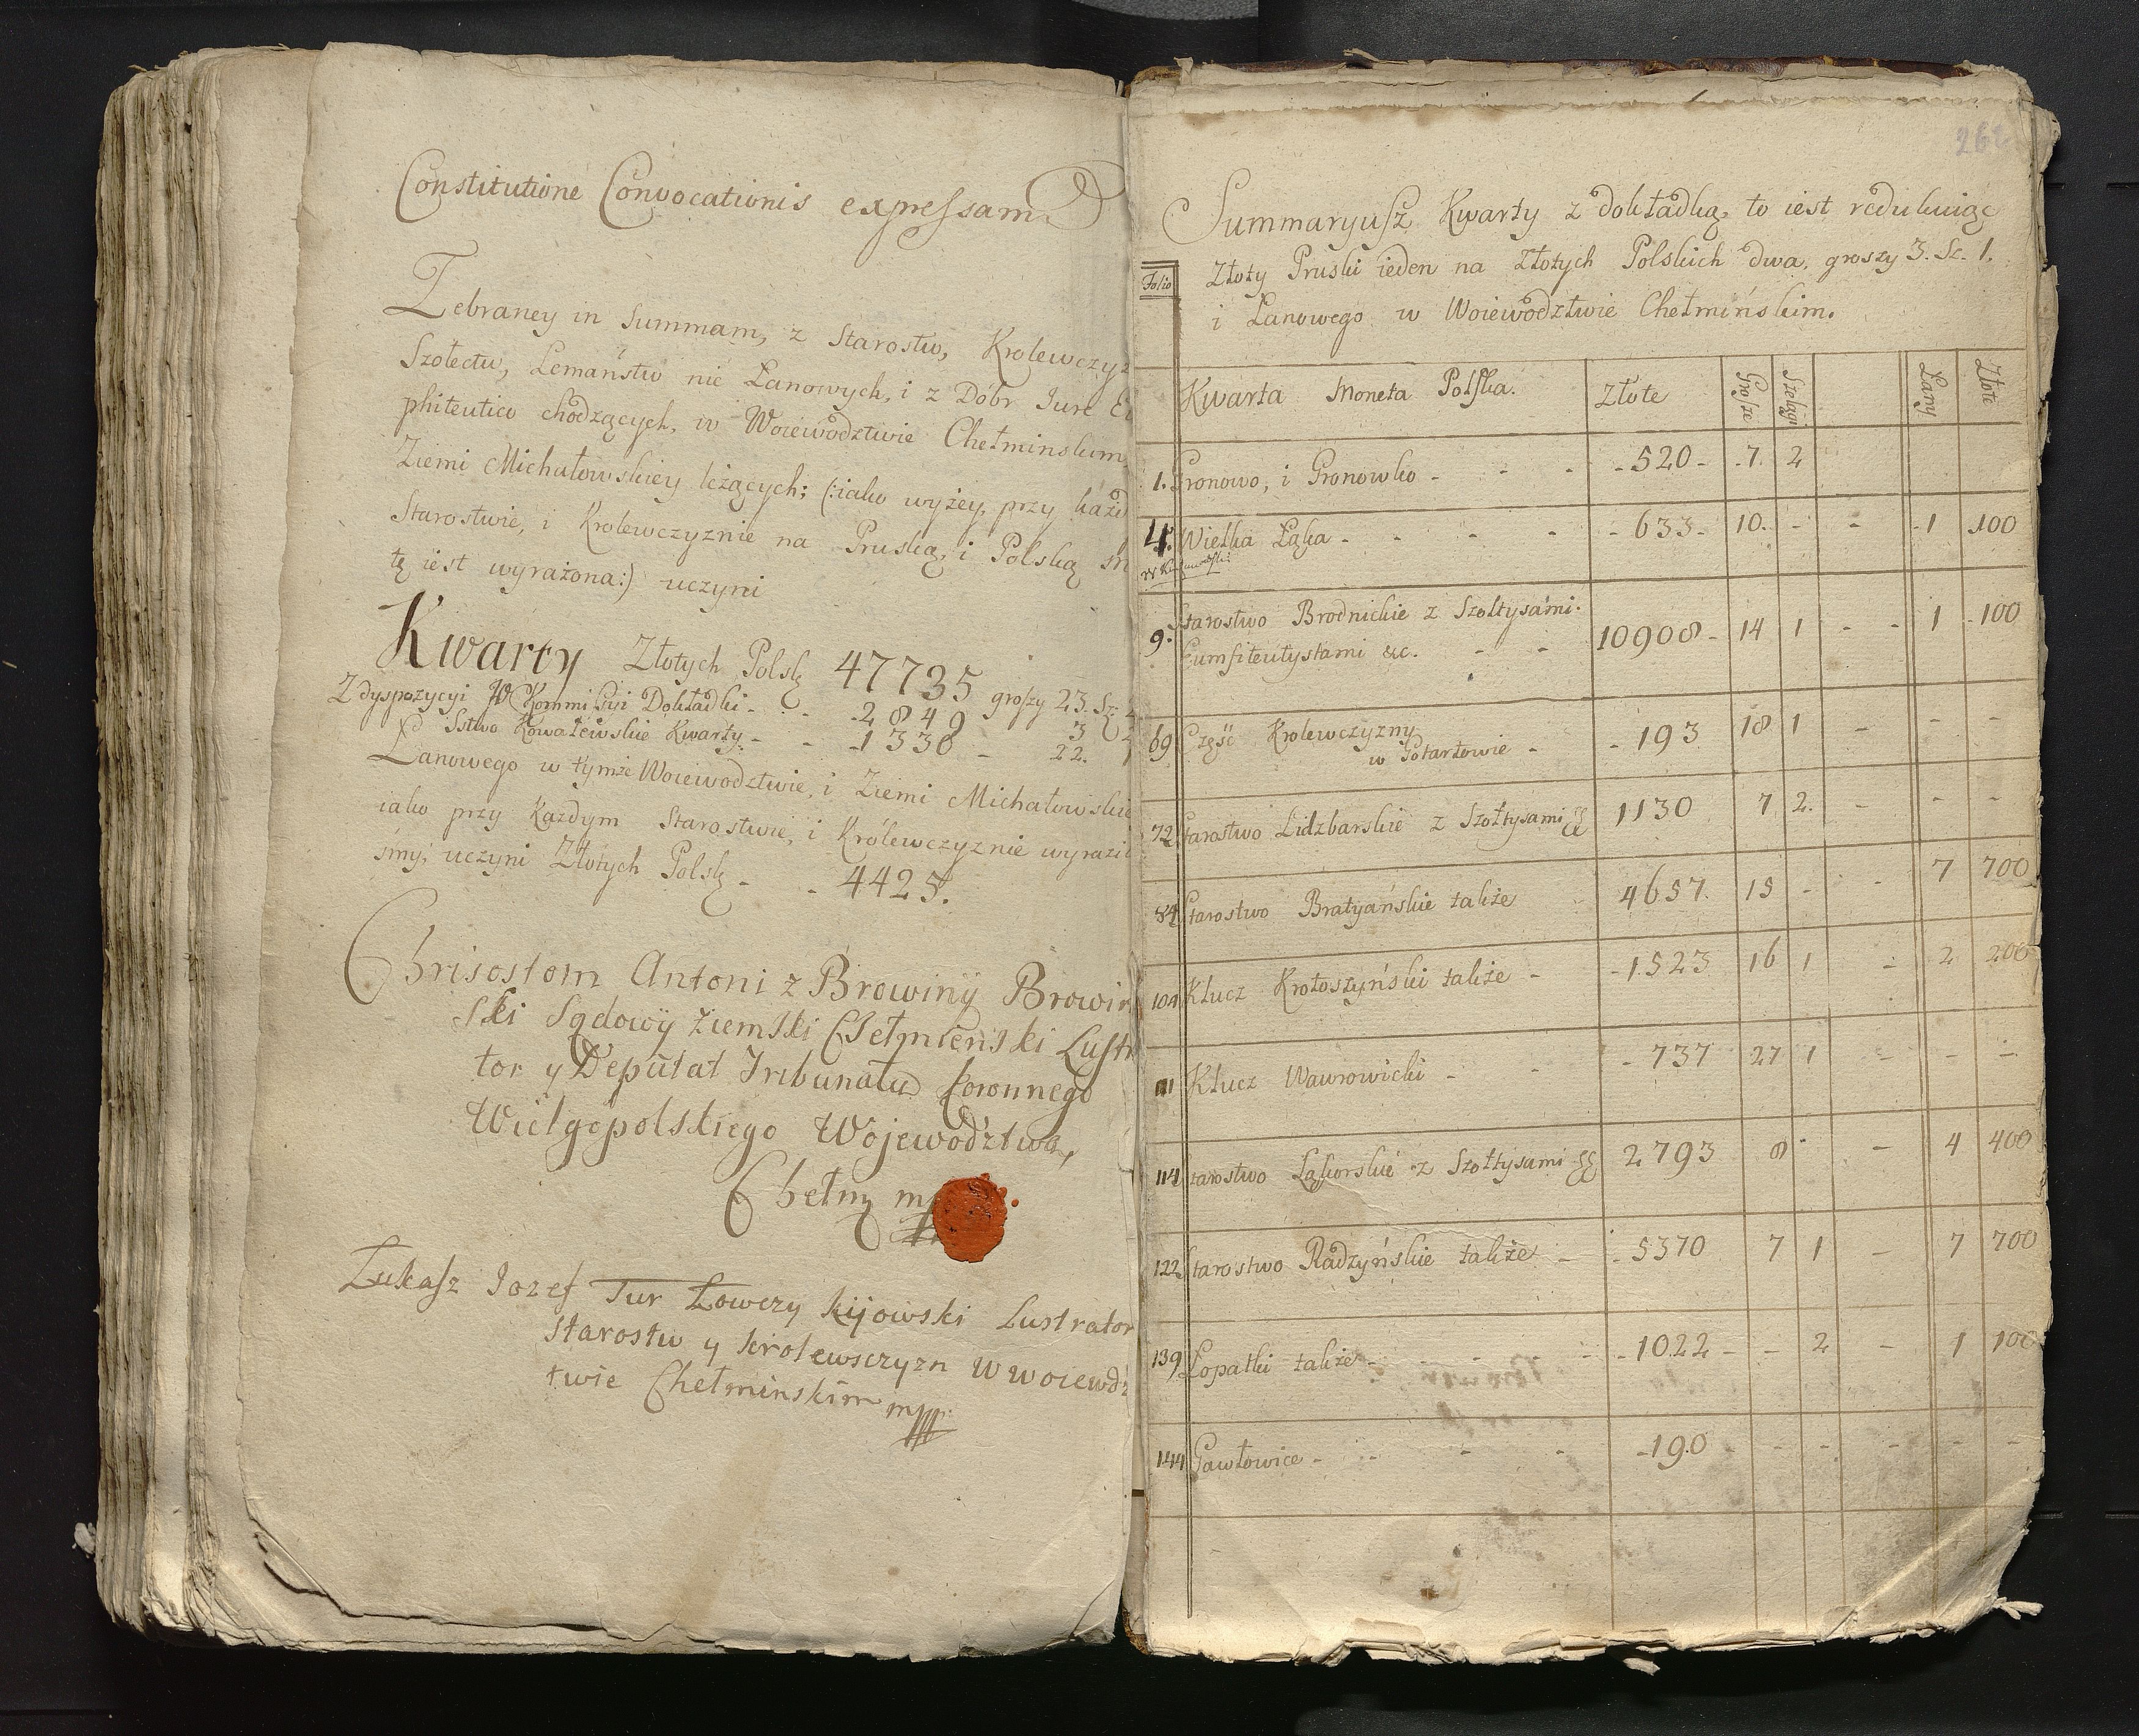 Constitutione Convocationis expressam
Zebraney in Summam, z Starostw, Krolewczyz
Szołectw, Lemaństw nie Łanowych, i z Dóbr Jure E
phiteutico chodzących, w Woiewodztwie Chełminskim
Ziemi Michałowskiey leżących; (:iako wyżey, przy każd
Starostwie, i Krolewczyznie na Pruską, i Polską m
tę iest wyrażona:) uczyni
Kwarty Złotych Polsk 47735 groszy 23. Sz:
Z dyspozycyi JW Kommissyi Dokładki - - - 2849 3
Z Sstwo Kowalewskie Kwarty - - - 1338 - 22. 1
Łanowego w tymże Woiewodztwie, i Ziemi Michałowskie
iako przy Każdym Starostwie, i Królewczyznie wyrazi
śmy; uczyni Złotych Polsk - - 4425.
Chrisostom Antoni z Browiny Browin
ski Sądowy Ziemski Chełmienski Lustr
tor y Deputat Trybunału Koronnego
Wielgopolskiego Wojewodztwa,
Chełm mp
Łukasz Jozef Tur Łowczy kijowski Lustrator
Starostw y krolewsczyzn w woiewdz
twie Chełminskim mp
Summaryusz Kwarty z dokładką, to iest redukuiąc
Folio
Złoty Pruski ieden na Złotych Polskich dwa, groszy 3. Sz. 1.
i Łanowego w Woiewodztwie Chełmińskim.
Kwarta Moneta Polska. Złote Grosze Szelągi Łany Złote
1. Gronowo, i Gronowko - - - - 520 - 7. 2
4. Wielka Łąka - - - - - 633 - 10. - - 1 100
9. Starostwo Brodnickie z Szołtysámi.
Eumfiteutystami &c. - - 10908 - 14 1 - - 1 100
69 Część Krolewczyzny
w Polarłowie - - 193 18 1 - - -
72 Starostwo Lidzbarskie z Szołtysami 1130 7 2. - - -
84 Starostwo Bratyańskie także 4657. 15 - - 7 700
104 Klucz Krotoszyński także - - 1523 16 1 - 2 200
111 Klucz Wawrowicki - - - 737 27 1 - - -
114 Starostwo Łąkorskie z Szołtysami 2793 8 - 4 400
122 Starostwo Radzyńskie także - - 5370 7 1 - 7 700
139 Łopatki także - - - - - 1022 - - 2 - 1 100
144 Pawłowice - - - - - 190 - - - - - -